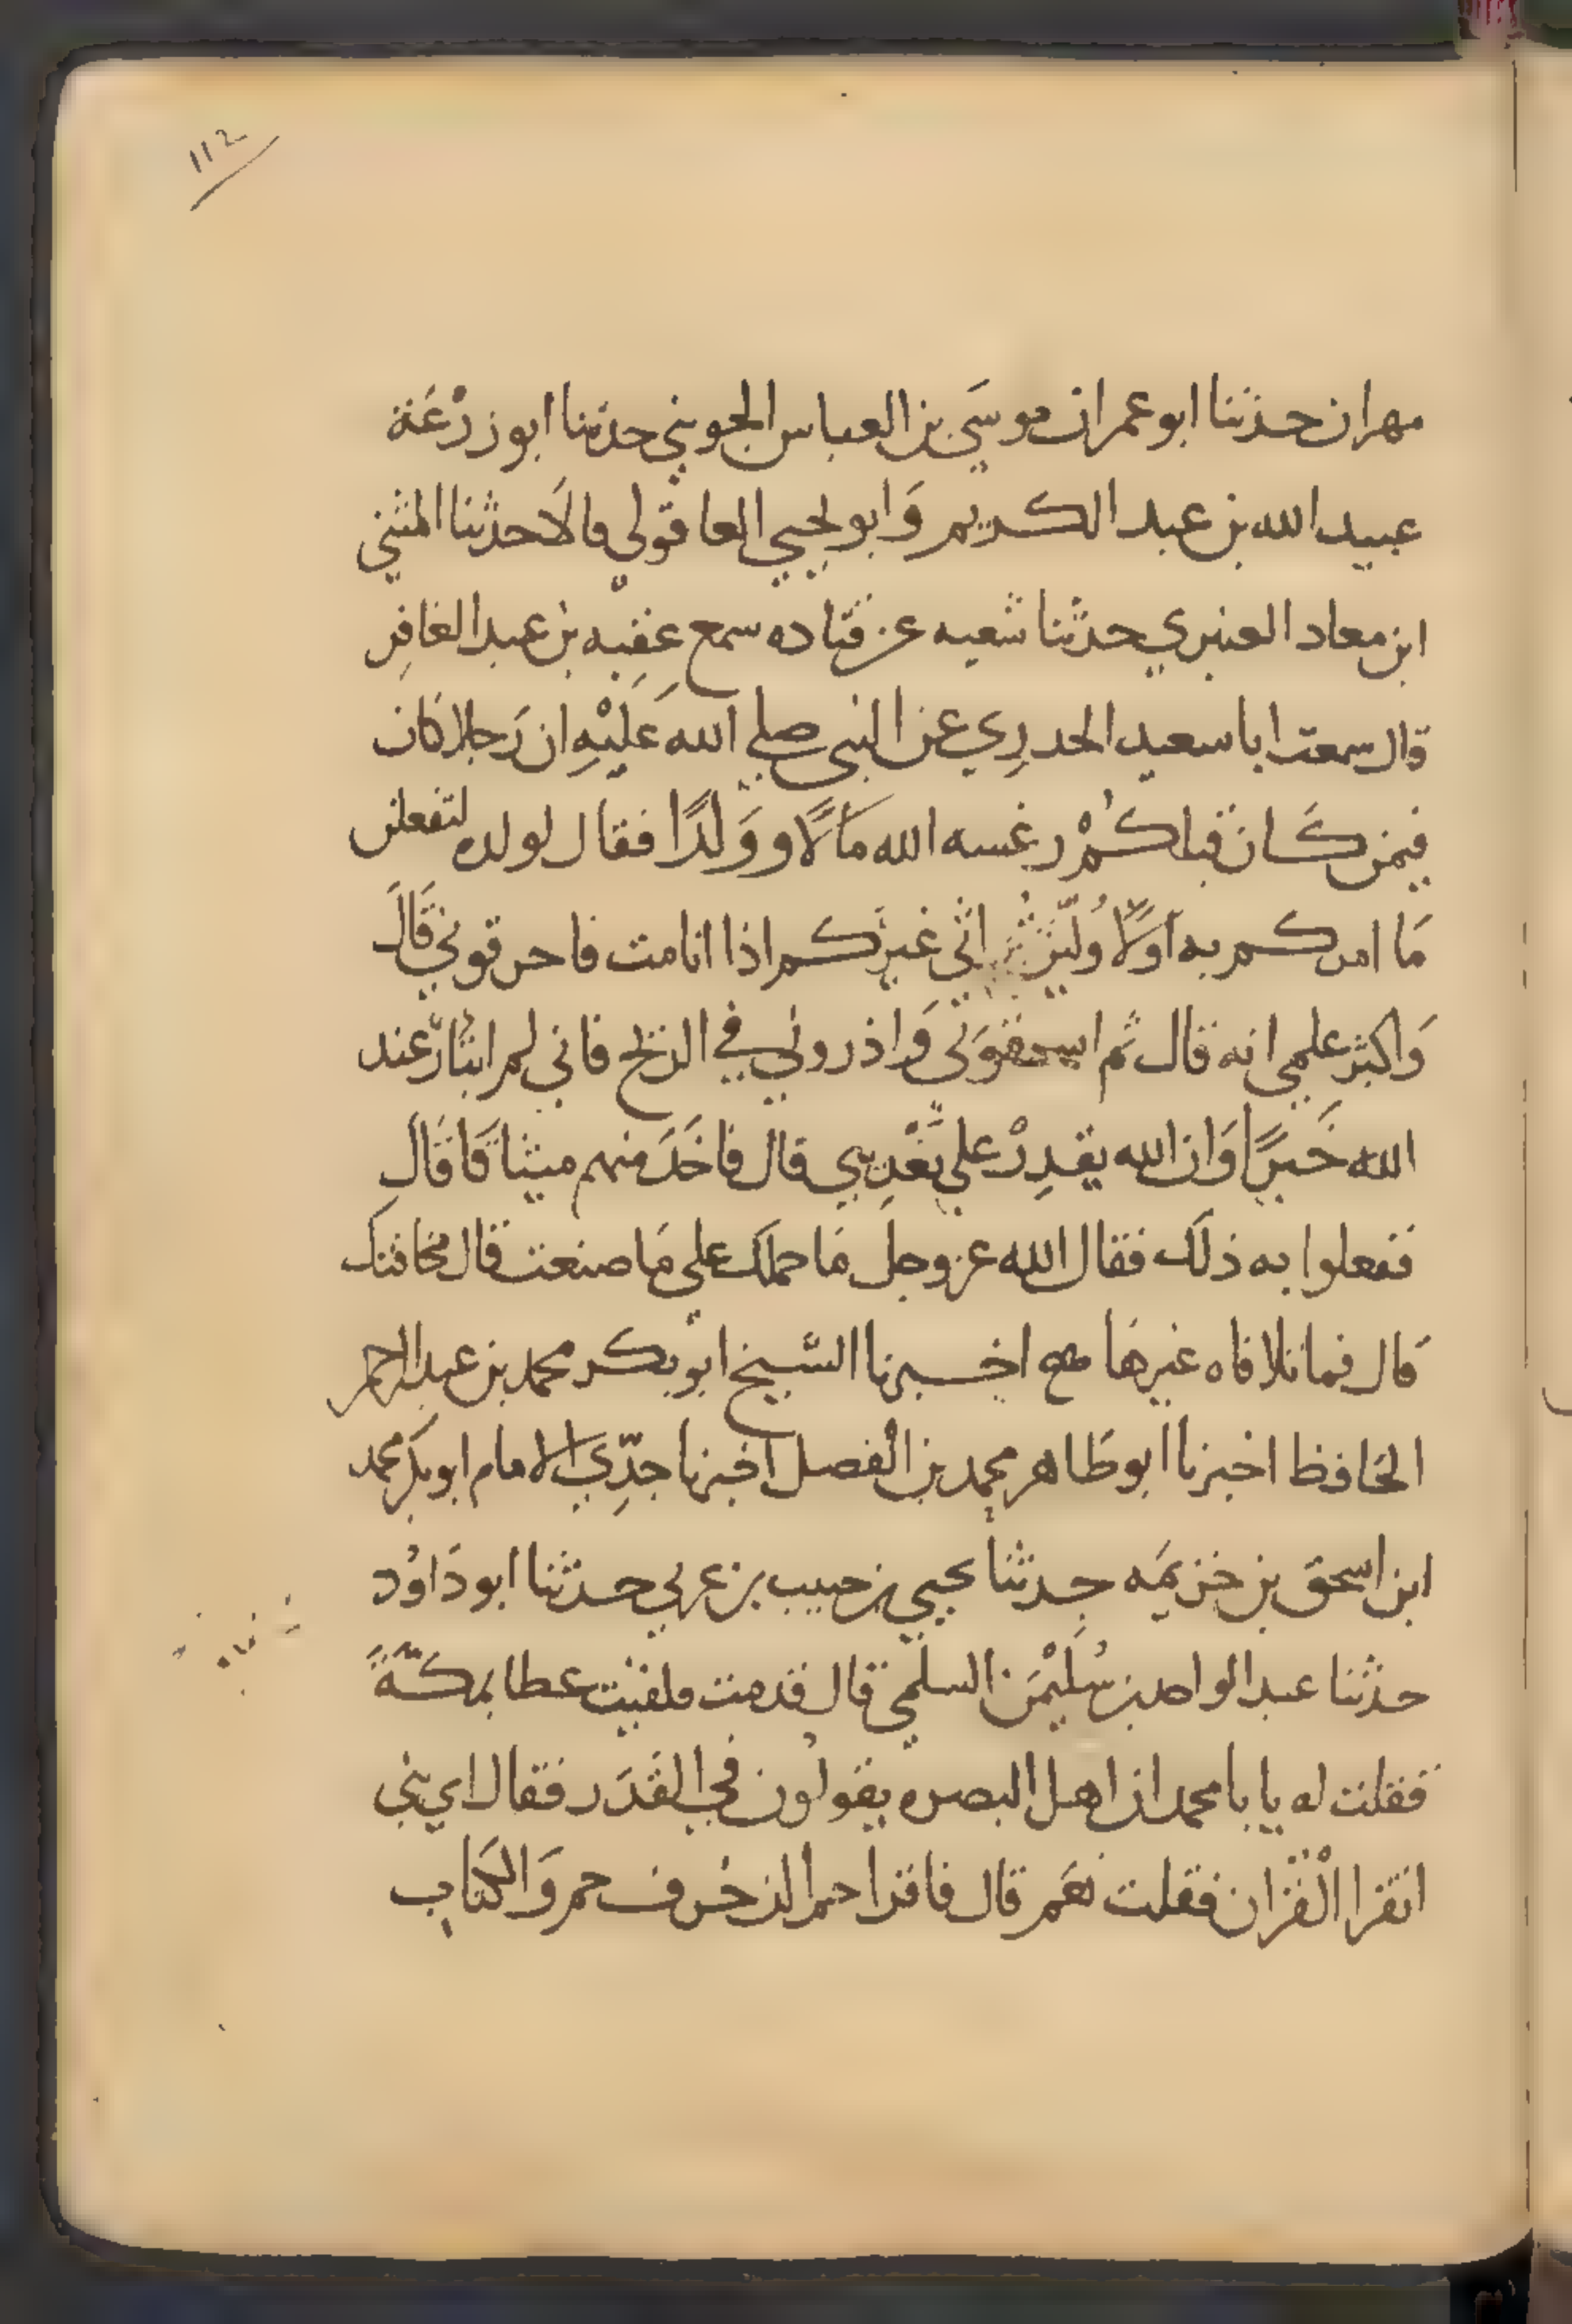 112
مهران حدثنا ابو عمران موسَي بن العباس الجويني حدثنا ابو زرْعَة
عبيد الله بن عبد الكريم وَابو يحيي العاقولي قالَا حدثنا المثني
ابن معاد العنبري حدثنا شعبه عن قتاده سمع عقبه بن عبد الغافِر
قال سمعت ابا سعيد الخدرِي عن النبى صلي الله عَليْهِ ان رَجلا كان
فيمن كَان قبلكُمْ رغسه الله مَالًا ووَلدًا فقال لولده لتفعلن
مَا امركم به اولًا وُليّن اثي غيركم اذا انا مت فاحرقوني قَالَ
وَاكثر علمي انه قال ثم اسحقوني وَاذروني في الريح فاني لم ابتارّ عند
الله خَيرًا وَان الله يقدِرْ علي تعْذِيبي قال فاخَدَ منهم ميثاقَا قَالِ
ففعلوا به ذلَك فقال الله عز وجل مَا حملك علي مَا صنعت قال مخافتك
قال فما تلافاه غيرهَا صح اخبرنا الشيخ ابو بكر محمد بن عبد الرحمن
الحافظ اخبرنا ابو طَاهر محمد بن الفضل اخبرنا جدّي الامام ابو بكر محمد
ابن اسحق بن خزيمَه حدثنا يحيي بن حبيب بن عربي حدثنا ابو دَاوُد
حدثنا عبد الواحد بن سُليْمَن السلمي قال قدمت فلقيت عطا بمكّةَ
فقلت له يا با محمد ان اهل البصره يقولُون في القَدَر فقال اي بني
اتقرا الْقران فقلت نعَم قال فاقرا حم الزخرف حم وَالكتاب